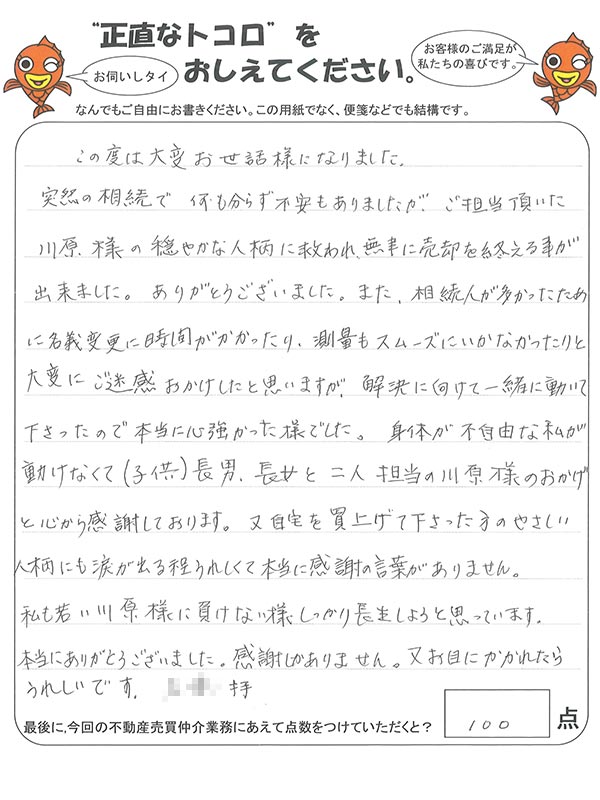 "正直なトコロ"を
おしえてください。
お伺いしタイ
お客様のご満足が
私たちの喜びです。
なんでもご自由にお書きください。この用紙でなく、便箋などでも結構です。
この度は大変お世話様になりました。
突然の相続で 何も分らず不安もありましたが、ご担当頂いた
川原、様の穏やかな人柄に救われ、無事に売却を終える事が
出来ました。ありがとうございました。また、相続人が多かったため
に名義変更に時間がかかったり、測量もスムーズにいかなかったりと
大変にご迷惑おかけしたと思いますが、解決に向けて一緒に動いて
下さったので本当に心強かった様でした。身体が不自由な私が
動けなくて(子供)長男、長女と二人 担当の川原様のおかげ
と心から感謝しております。又自宅を買上げて下さった方のやさしい
人柄にも涙が出る程うれしくて本当に感謝の言葉がありません。
私も若い川原様に負けない様しっかり長生しようと思っています。
本当にありがとうございました。感謝しかありません。又お目にかかれたら
うれしいです。
最後に,今回の不動産売買仲介業務にあえて点数をつけていただくと?
100
点